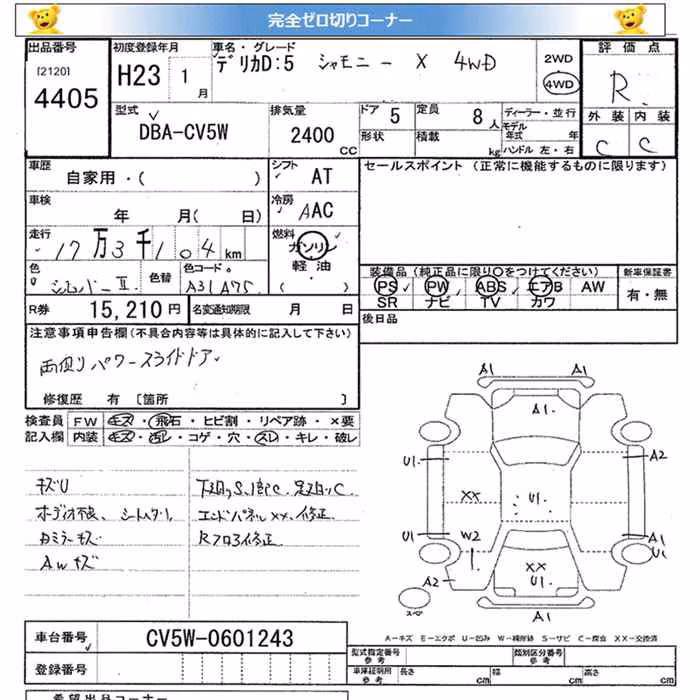 完全ゼロ切りコーナー
出品番号 初度登録年月 車名・グレード 評価点
[2120] 4405 H23 1月 デリカD:5 シャモニー X 4WD 2WD 4WD R
型式 DBA-CV5W 排気量 2400 CC ドア 5 定員 8人 ディーラー・並行 外装 内装
形状 積載 kg モデル年式 年 ハンドル 左・右 C C
車歴 自家用・( ) シフト AT セールスポイント (正常に機能するものに限ります)
車検 年 月( 日) 冷房 AAC
走行 17万3千104km 燃料 ガソリン
軽油
色 シルバーII 色替 色コード A31 A75 ( ) 装備品(純正品に限り○をつけてください) 新車保証書
PS PW ABS エアB AW 有・無
SR ナビ TV カワ
R券 15,210円 名変通知期限 月 日 後日品
注意事項申告欄(不具合内容等は具体的に記入して下さい)
両側パワースライドドア
修復歴 有 [箇所 ]
検査員 FW キズ・飛石・ヒビ割・リペア跡・×要
記入欄 内装 キズ・汚レ・コゲ・穴・スレ・キレ・破レ
キズU
オーディオ不良、
Dミラーキズ
AWキズ
エンドパネルXX、修正
Rフロア修正
A1 A1
A1
U1 A2
XX U1
U1 W2 A1 U1
A2 XX U1
スペア A1
A-キズ E-エクボ U-凹み W-補修跡 S-サビ C-腐食 XX-交換済
車台番号 CV5W-0601243 型式指定番号 参考 類別区分番号 参考
登録番号 車庫証明用 参考 長さ cm 幅 cm 高さ cm
希望出品コーナー